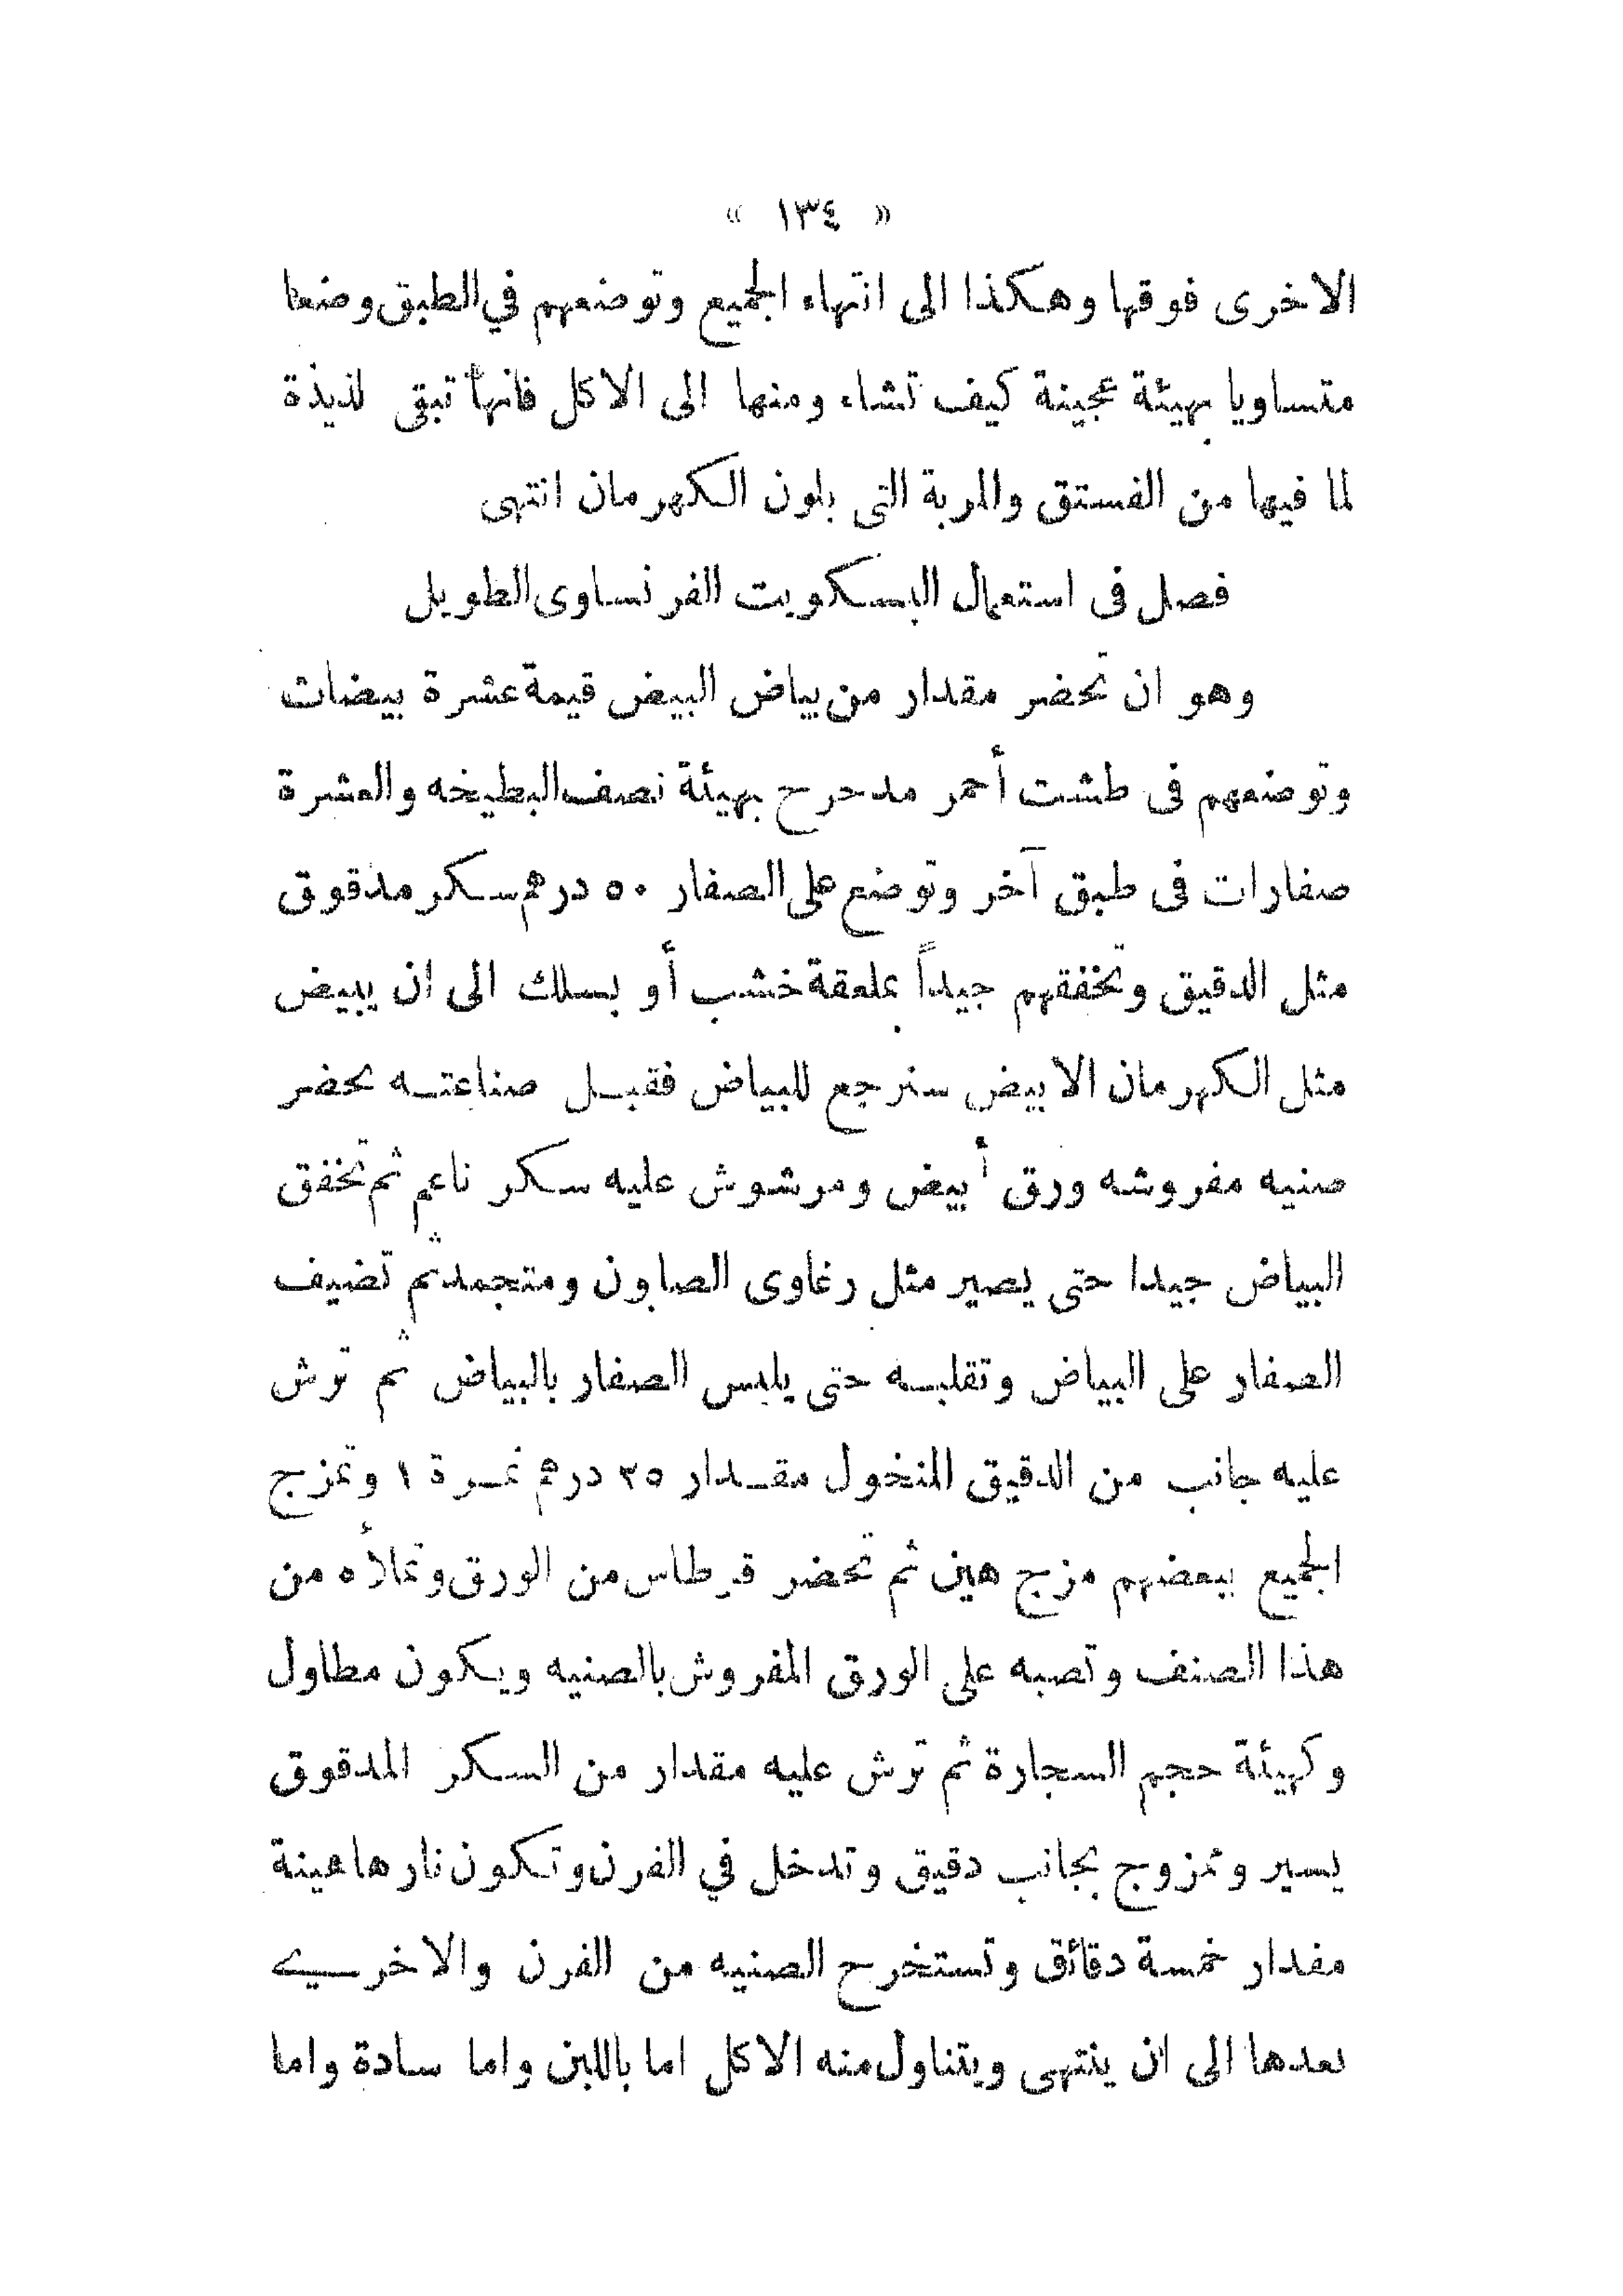 « ١٣٤ »
الاخرى فوقها وهكذا الى انتهاء الجميع وتوضعهم في الطبق وضعا
متساويا بهيئة عجينة كيف تشاء ومنها الى الاكل فانها تبقى لذيذة
لما فيها من الفستق والمربة التى بلون الكهرمان انتهى
فصل فى استعمال البسكويت الفرنساوى الطويل
وهو ان تحضر مقدار من بياض البيض قيمة عشرة بيضات
وتوضعهم فى طشت أحمر مدحرح بهيئة نصف البطيخه والعشرة
صفارات فى طبق آخر وتوضع على الصفار ٥٠ درهم سكر مدقوق
مثل الدقيق وتخفقهم جيداً بملعقة خشب أو بسلك الى ان يبيض
مثل الكهرمان الابيض سنرجع للبياض فقبل صناعته يحضر
صنيه مفروشه ورق أبيض ومرشوش عليه سكر ناعم ثم تخفق
البياض جيدا حتى يصير مثل رغاوى الصابون ومتجمد ثم تضيف
الصفار على البياض وتقلبه حتى يلبس الصفار بالبياض ثم ترش
عليه جانب من الدقيق المنخول مقدار ٣٥ درهم نمرة ١ وتمزج
الجميع ببعضهم مزج هين ثم تحضر قرطاس من الورق وتملأه من
هذا الصنف وتصبه على الورق المفروش بالصنيه ويكون مطاول
وكهيئة حجم السجارة ثم ترش عليه مقدار من السكر المدقوق
يسير وممزوج بجانب دقيق وتدخل في الفرن وتكون نارها هينة
مقدار خمسة دقائق وتستخرح الصنيه من الفرن والاخرى
بعدها الى ان ينتهى ويتناول منه الاكل اما باللبن واما سادة واما